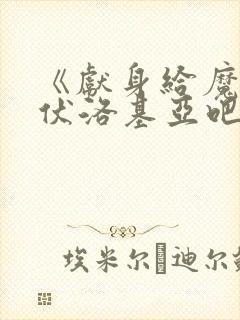 《獻身給魔
伏洛基亞吧
埃米尔 迪尔